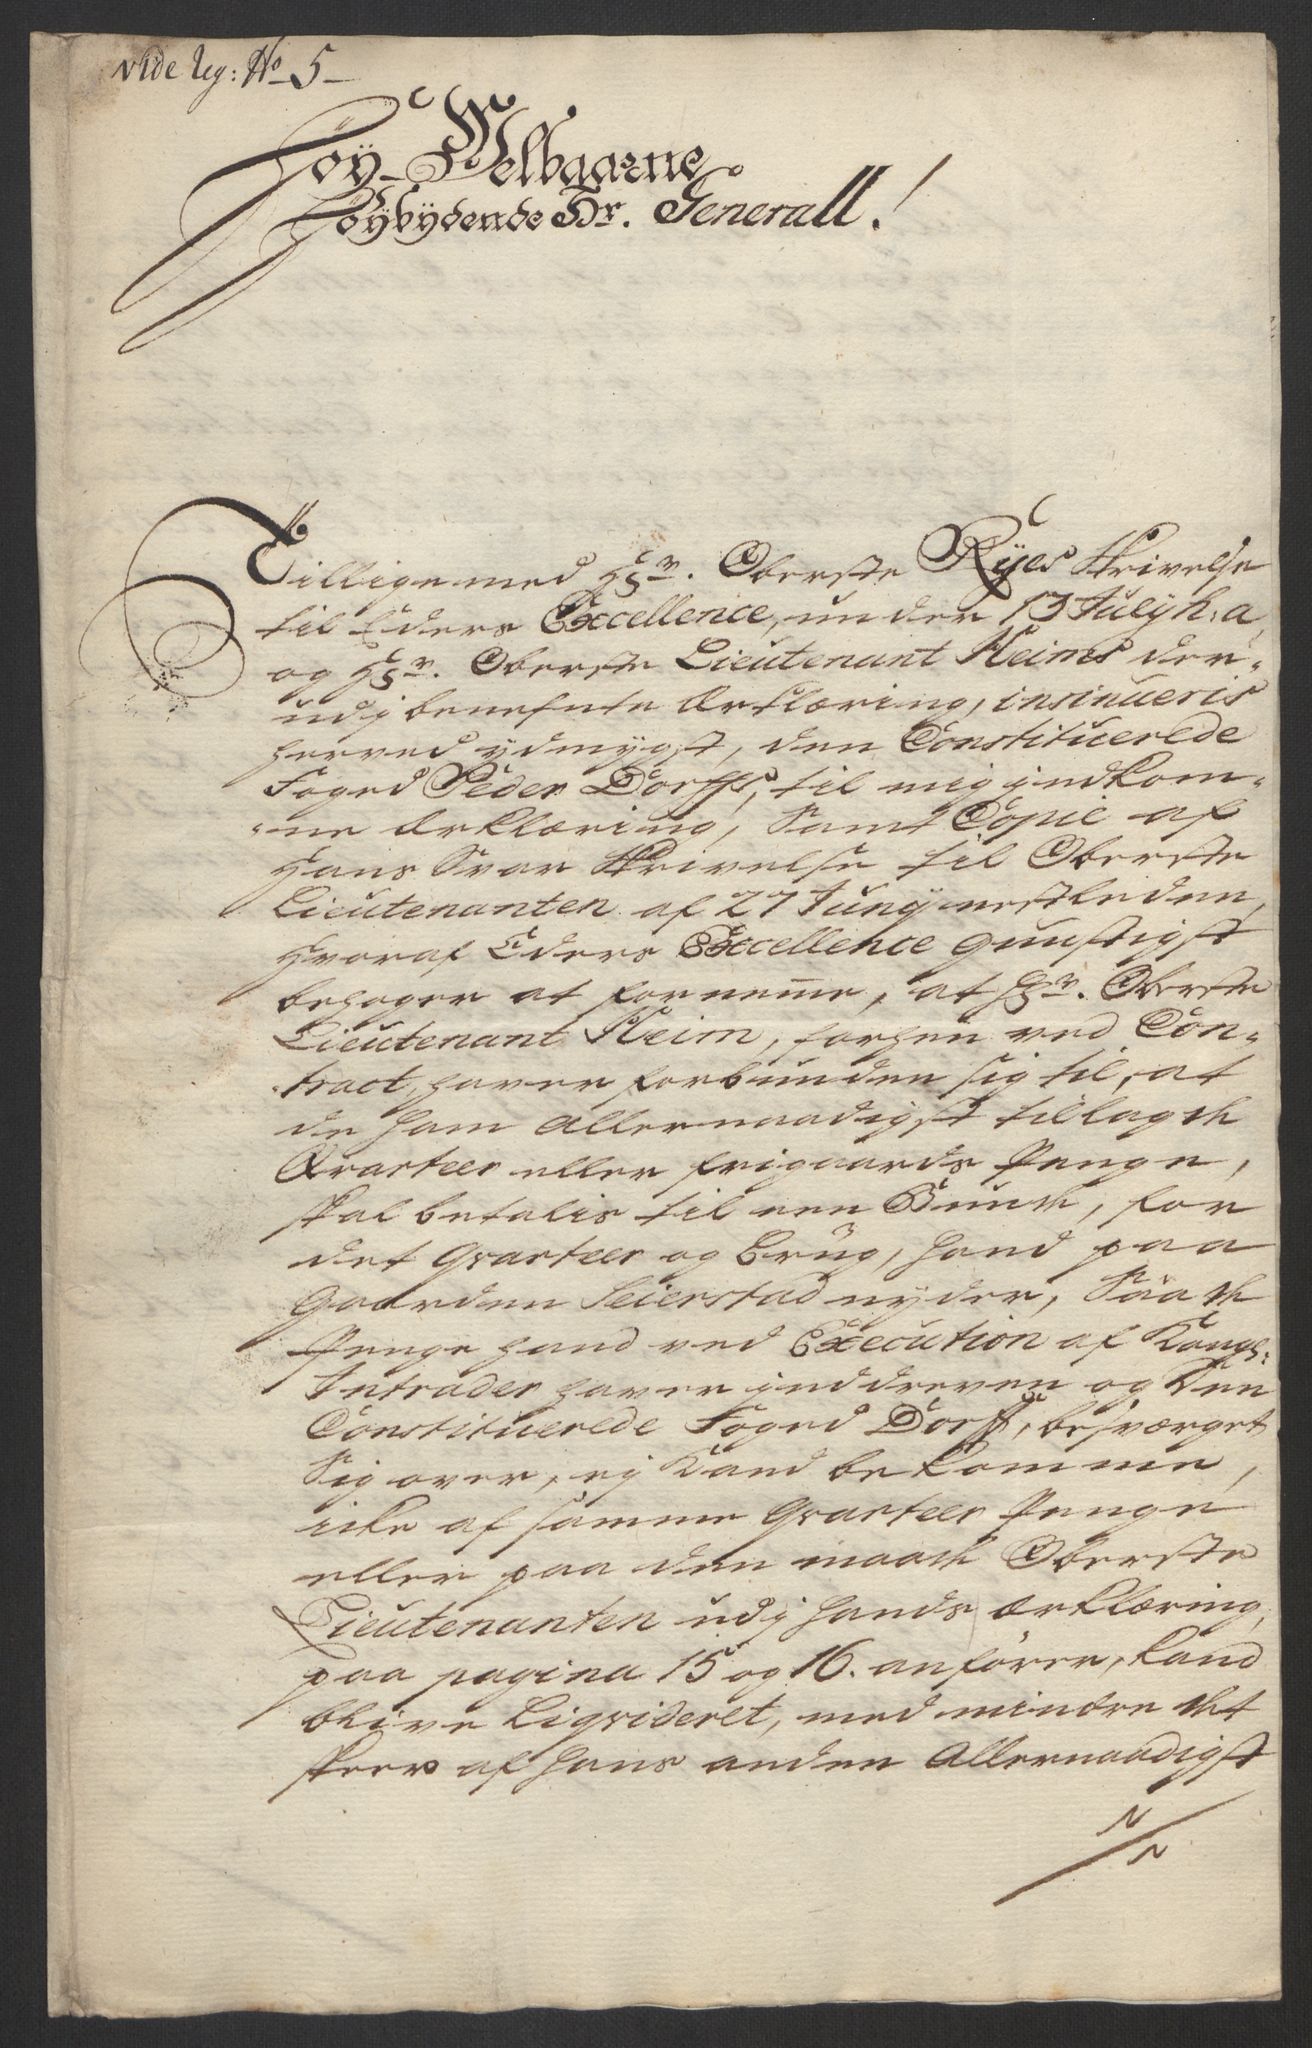 vide reg: No 5
Høy-Welbaarne
Høybydende Hr. Generall!
Tillige med Hr. Oberste Ryes Skrivelse
til Eders Excellence, under 13 July h: a
og Hr. Oberste Lieutenant Heims der-
udj benefnte Erklæring, insinueris
herved ydmygst, den Constituerede
Foged Peder Dorffs, til mig indkom-
ne Erklæring, samt Copie af
Hans Svar Skrivelse til Oberste
Lieutenanten af 27 Juny nestleden,
hvoraf Eders Excellence gunstigst
behager at fornemme, at Hr. Oberste
Lieutenant Heim, forhen ved Con-
tract, haver forbunden sig til, at
de ham allernaadigst tillagde
Qvarteer eller frigaards Penge,
skal betalis til een Bunde, for
det Qvarteer og Brug, hand paa
Gaarden Seierstad nyder, Saa de
Penge hand ved Execution af Kongl:
Intrader haver inddreven og den
Constituerede Foged Dorff, besværget
sig over, ej kand bekomme,
icke af samme Qvarteer Penge
eller paa den maade Oberste
Lieutenanten udj hands Erklæring,
paa pagina 15 og 16. anfører, kand
blive Liqvideret, med mindre det
skeer af hans anden Allernaadigst